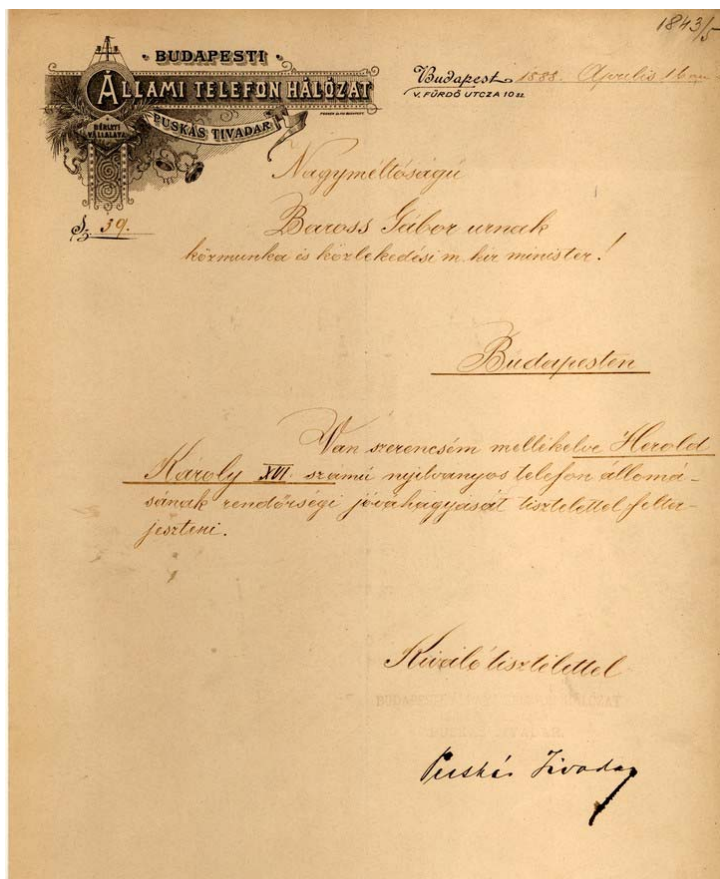 1843/5
BUDAPESTI
ÁLLAMI TELEFON HÁLÓZAT
BÉRLETI
VÁLLALATA
PUSKÁS TIVADAR
Budapest 1888. Április 16
V. FÜRDŐ UTCZA 10 SZ.
Sz. 39.
Nagyméltóságú
Baross Gábor urnak
közmunka és közlekedési m. kir minister!
Budapesten
Van szerencsém mellékelve Herold
Károly XVI. számú nyilványos telefon állomá-
sának rendőrségi jóváhagyását tisztelettel felter-
jeszteni.
Kiváló tisztelettel
BUDAPESTI HÁLÓZAT
PUSKÁS TIVADAR
Puskás Tivadar